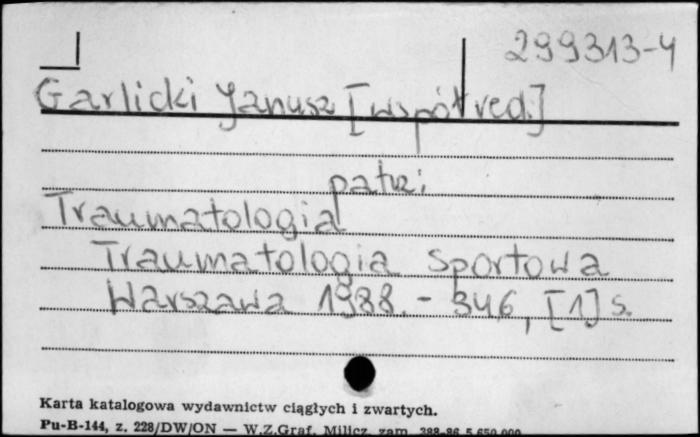 299313-4
Garlicki Janusz [współred.]
patrz:
Traumatologia
Traumatologia sportowa
Warszawa 1988. - 346, [1] s.
Karta katalogowa wydawnictw ciągłych i zwartych.
Pu-B-144, z. 228/DW/ON — W.Z.Graf. Milicz, zam. 388-86 5.650.000